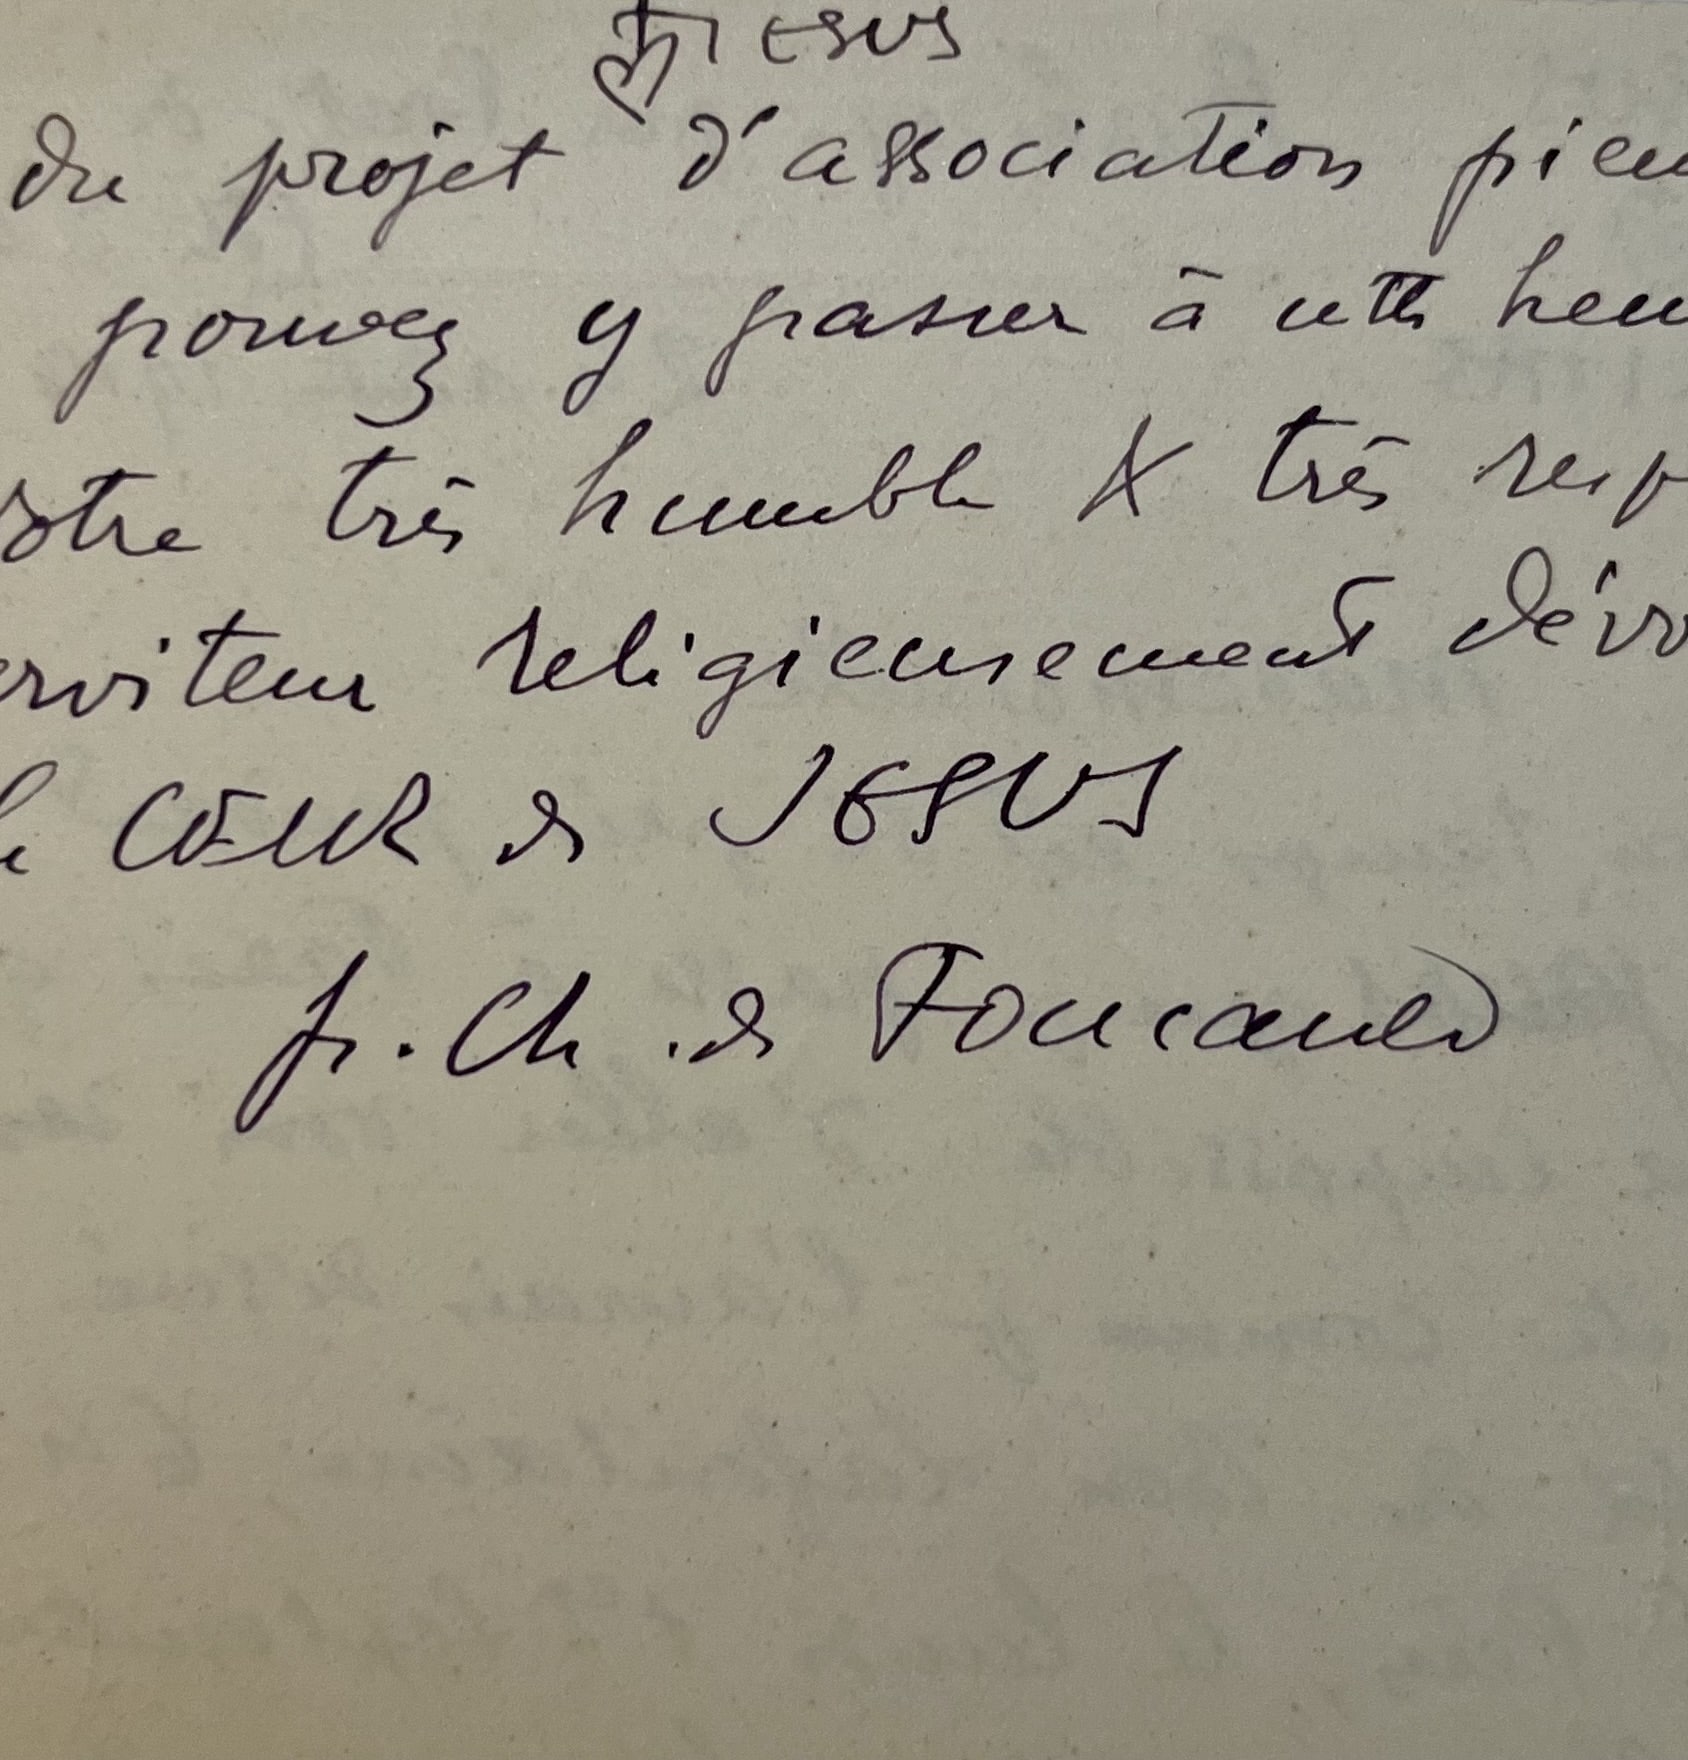 JESUS
du projet d'association pieu
pouvez y passer à cette heu
votre très humble & très resp
erviteur religieusement dévo
le CŒUR de JESUS
fr. Ch. de Foucauld